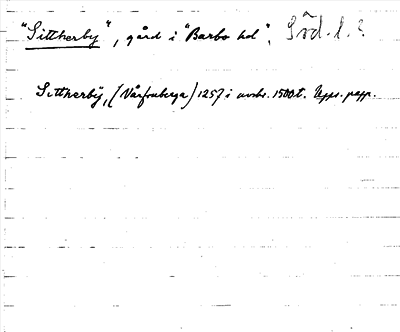 "Sittherby", gård i "Barbo hd". Söd.l.?
Sittherby, (Vårfruberga) 1257 i avskr. 1500t. Upps. papp.